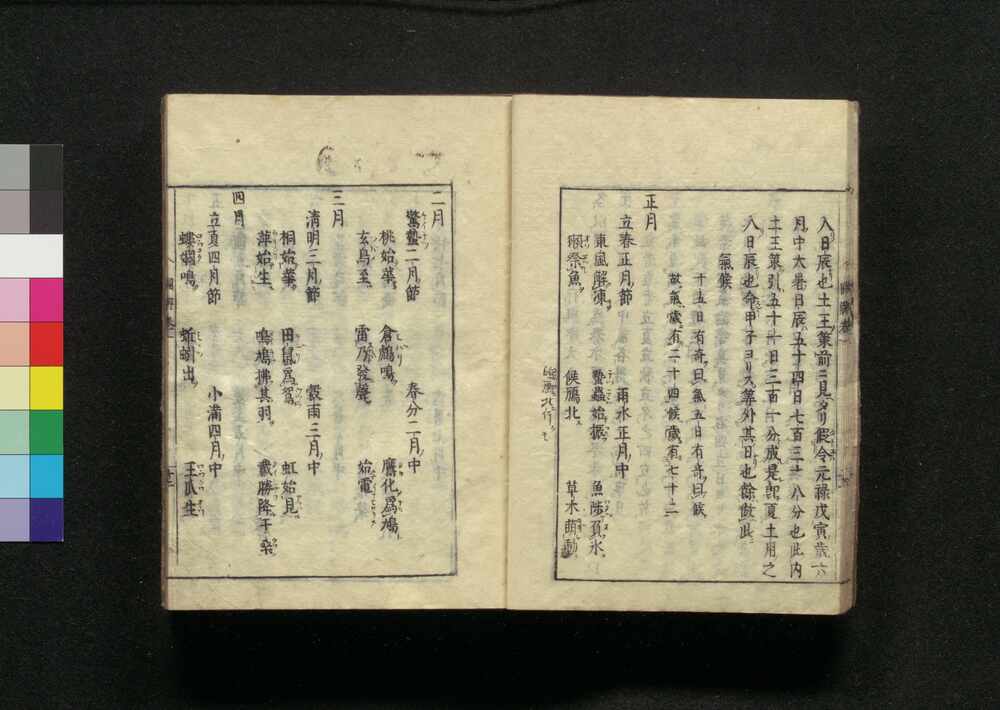 入日辰也土王策前ニ見タリ假令元禄戊寅歳六
月中大暑日辰五十四日七百三十八分也此内
土王策引五十一日三百一分成是即夏土用之
入日辰也命甲子ヨリス筭外其日也餘倣此
氣候
十五日有奇曰氣五日有奇曰候
故氣歳有二十四候歳有七十二
正月
立春正月節 雨水正月中
東風解凍 蟄蟲始振 魚陟負氷
獺祭魚 候鴈北 草木萌動
二月
驚蟄二月節 春分二月中
桃始華 倉鶊鳴 鷹化為鳩
玄鳥至 雷乃發聲 始電
三月
清明三月節 穀雨三月中
桐始華 田鼠為鴽 虹始見
萍始生 鳴鳩拂其羽 戴勝降于桑
四月
立夏四月節 小満四月中
螻蟈鳴 蚯蚓出 王瓜生